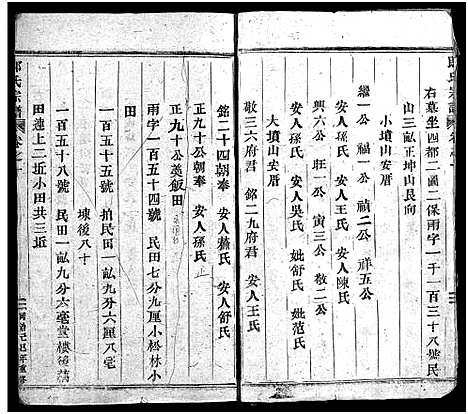 邱氏宗譜 卷之一
右墓坐四都二圖二保雨字一千一百三十八號民
山三畝正坤山艮向
小墳山安厝
繼一公 福一公 禎二公 祥五公
安人孫氏 安人王氏 安人陳氏
興六公 旺一公 寅三公 敬一公
安人孫氏 安人吳氏 妣舒氏 妣范氏
大墳山安厝
敬三六府君 銘二九府君 安人王氏
銘二十四朝奉 安人蕭氏 安人舒氏
正九十公朝奉 安人孫氏
正九十公羹飯田
雨字一百五十四號 民田七分九厘小松林小
田
一百五十五號 拍民田一畝九分六厘八宅
垛後八十
一百五十八號 民田一畝九分六毫堂樓後蕩
田連上二坵小田共三坵
氏宗譜 卷之一